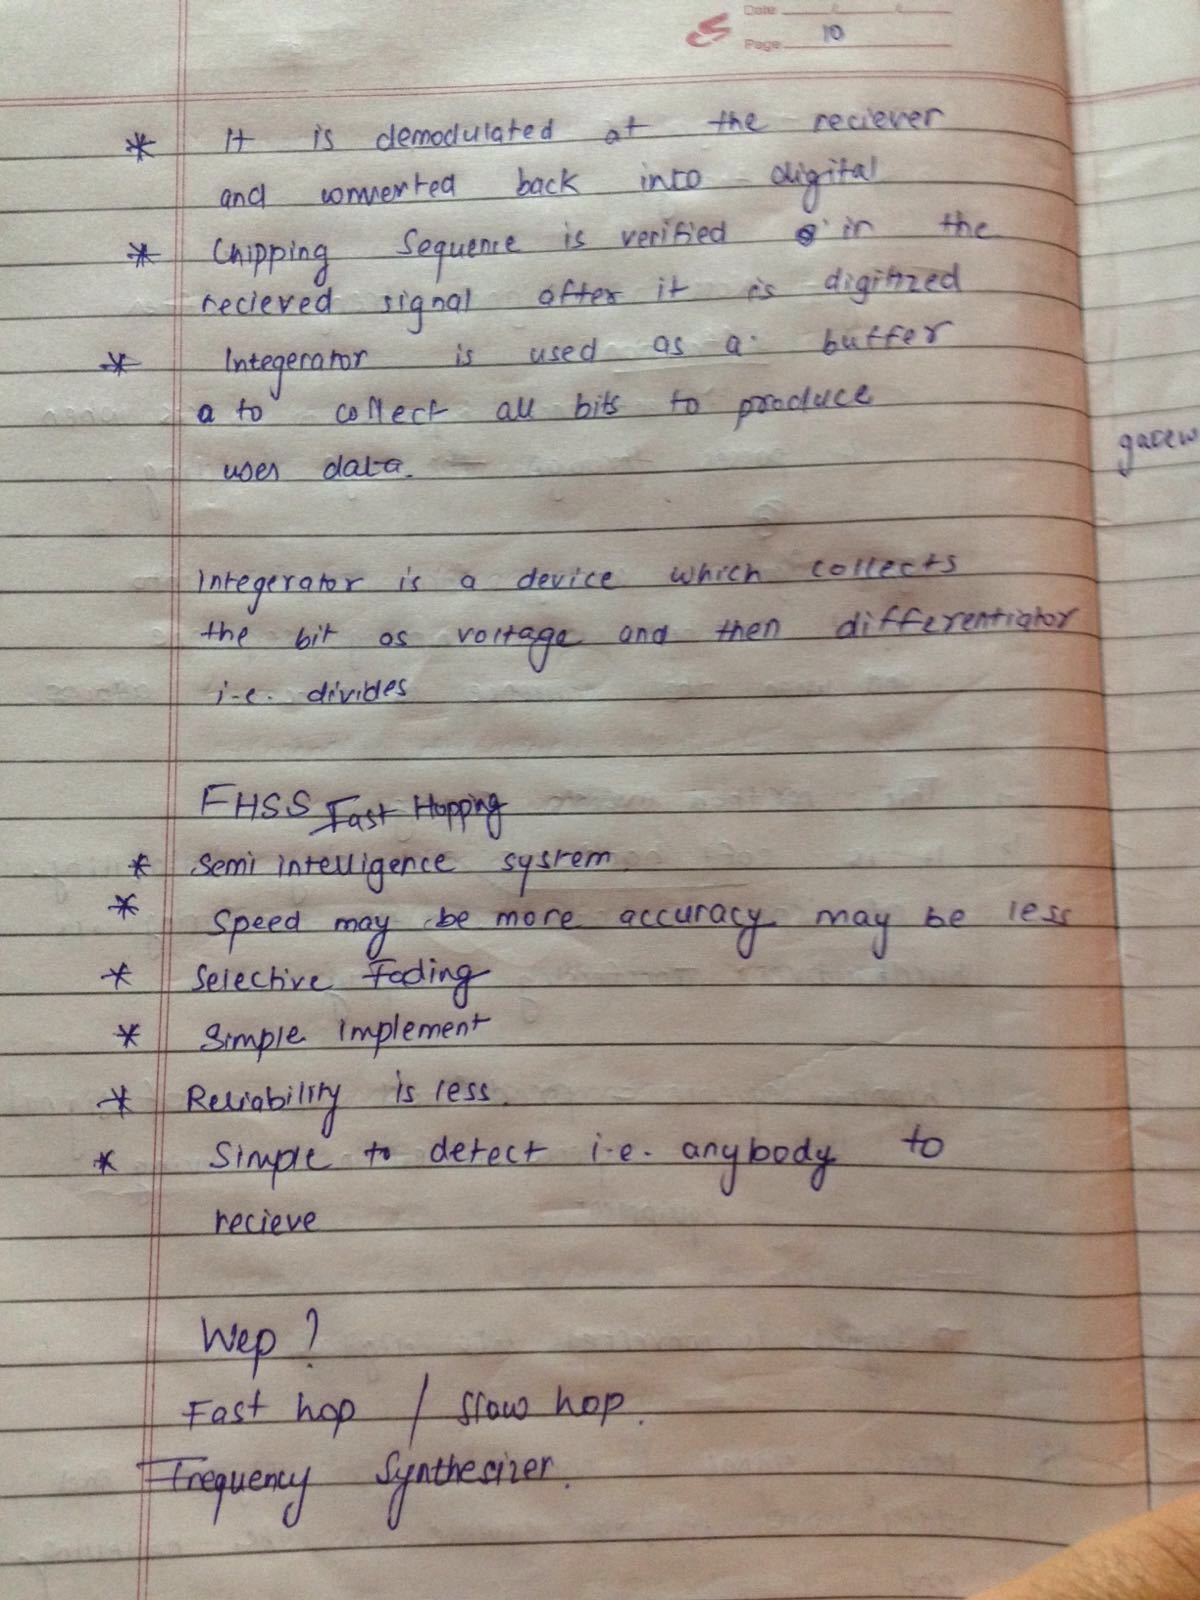 Date
Page 10
* It is demodulated at the reciever
and converted back into digital
* Chipping Sequence is verified in the
recieved signal after it is digitized
* Integerator is used as a buffer
a to collect all bits to produce
user data.
gatew
Integerator is a device which collects
the bit as voltage and then differentiator
i.e. divides
FHSS Fast Hopping
* Semi intelligence system
* Speed may be more accuracy may be less
* Selective Fading
* Simple implement
* Reliability is less.
* Simple to detect i.e. anybody to
recieve
Wep ?
Fast hop / slow hop.
Frequency Synthesizer.